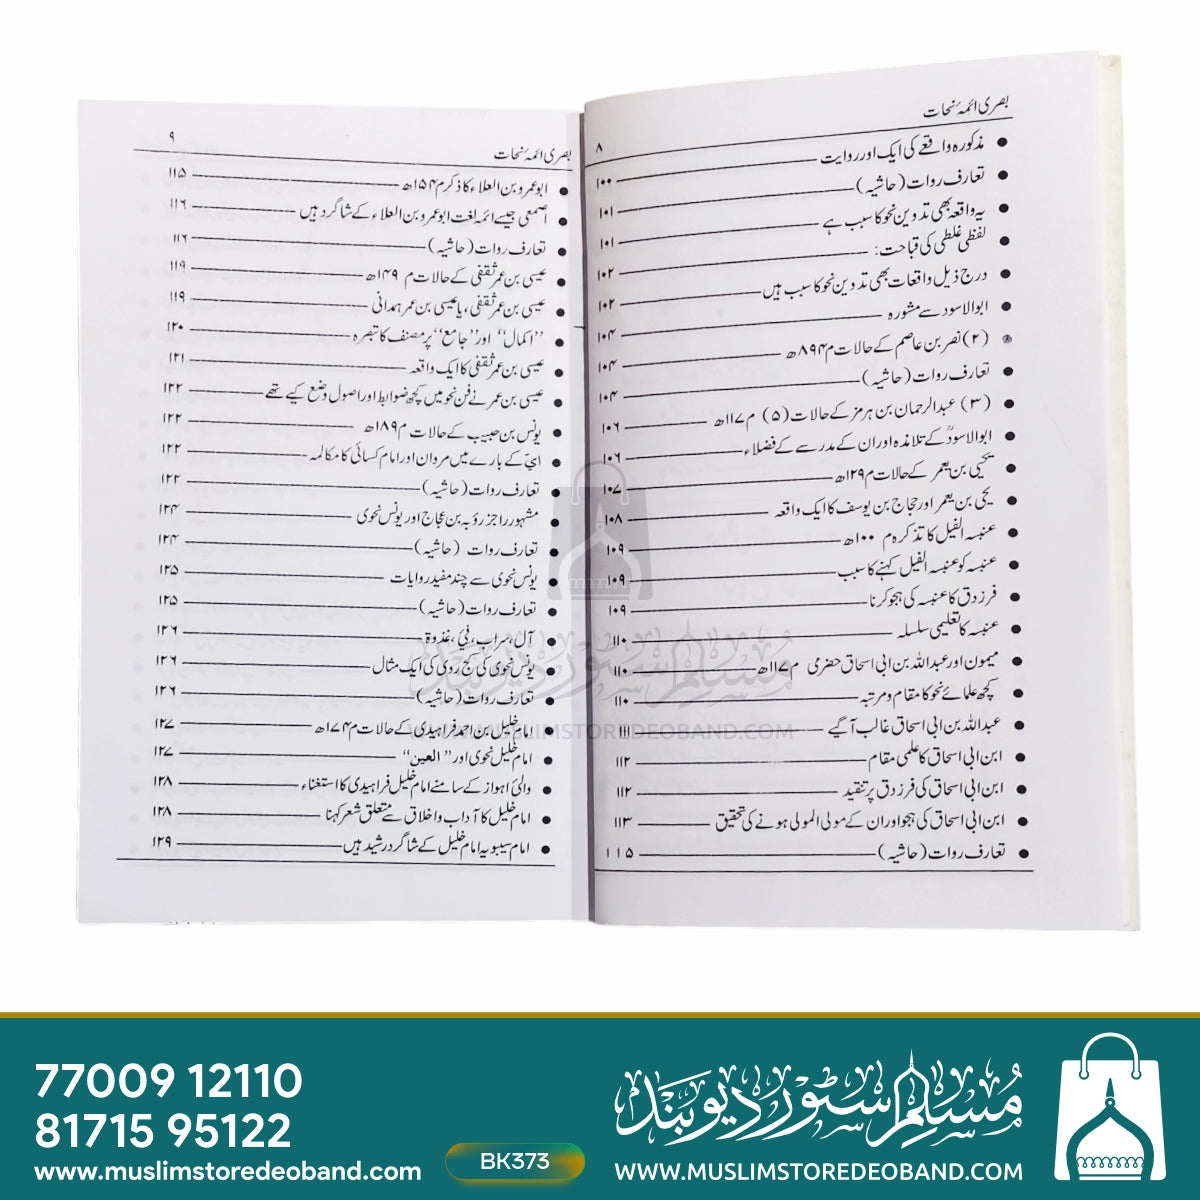 بصری ائمۂ نحات
۸
مذکورہ واقعے کی ایک اور روایت ۱۰۰
تعارف روات (حاشیہ) ۱۰۱
یہ واقعہ بھی تدوین نحو کا سبب ہے ۱۰۱
لفظی غلطی کی قباحت: ۱۰۲
درج ذیل واقعات بھی تدوین نحو کا سبب ہیں ۱۰۲
ابوالاسود سے مشورہ ۱۰۴
(۲) نصر بن عاصم کے حالات م ۸۹۴ھ ۱۰۴
تعارف روات (حاشیہ) ۱۰۴
(۳) عبدالرحمان بن ہرمز کے حالات (۵) م ۱۱۷ھ ۱۰۶
ابوالاسودؒ کے تلامذہ اور ان کے مدرسے کے فضلاء ۱۰۶
یحیٰ بن یعمر کے حالات م ۱۲۹ھ ۱۰۷
یحیٰ بن یعمر اور حجاج بن یوسف کا ایک واقعہ ۱۰۸
عنبسہ الفیل کا تذکرہ م ۱۰۰ھ ۱۰۹
عنبسہ کو عنبسہ الفیل کہنے کا سبب ۱۰۹
فرزدق کا عنبسہ کی ہجو کرنا ۱۰۹
عنبسہ کا تعلیمی سلسلہ ۱۱۰
میمون اور عبداللہ بن ابی اسحاق حضرمی م ۱۱۷ھ ۱۱۰
کچھ علمائے نحو کا مقام و مرتبہ ۱۱۰
عبداللہ بن ابی اسحاق غالب آگیے ۱۱۱
ابن ابی اسحاق کا علمی مقام ۱۱۲
ابن ابی اسحاق کی فرزدق پر تنقید ۱۱۲
ابن ابی اسحاق کی ہجو اور ان کے مولی المولی ہونے کی تحقیق ۱۱۳
تعارف روات (حاشیہ) ۱۱۵
بصری ائمۂ نحات
۹
ابو عمرو بن العلاء کا ذکر م ۱۵۴ھ ۱۱۵
اصمعی جیسے ائمہ لغت ابو عمرو بن العلاء کے شاگرد ہیں ۱۱۶
تعارف روات (حاشیہ) ۱۱۶
عیسی بن عمر ثقفی کے حالات م ۱۴۹ھ ۱۱۹
عیسی بن عمر ثقفی، یا عیسی بن عمر ہمدانی ۱۱۹
"اکمال" اور "جامع" پر مصنف کا تبصرہ ۱۲۰
عیسی بن عمر ثقفی کا ایک واقعہ ۱۲۱
عیسی بن عمر نے فن نحو میں کچھ ضوابط اور اصول وضع کیے تھے ۱۲۲
یونس بن حبیب کے حالات م ۱۸۹ھ ۱۲۲
ایّ کے بارے میں مروان اور امام کسائی کا مکالمہ ۱۲۲
تعارف روات (حاشیہ) ۱۲۲
مشہور راجز رؤبہ بن عجاج اور یونس نحوی ۱۲۴
تعارف روات (حاشیہ) ۱۲۴
یونس نحوی سے چند مفید روایات ۱۲۵
تعارف روات (حاشیہ) ۱۲۵
آل، سراب، فئ، غذوۃ ۱۲۶
یونس نحوی کی کج روی کی ایک مثال ۱۲۶
تعارف روات (حاشیہ) ۱۲۶
امام خلیل بن احمد فراہیدی کے حالات م ۱۷۴ھ ۱۲۷
امام خلیل نحوی اور "العین" ۱۲۷
والئ اہواز کے سامنے امام خلیل فراہیدی کا استغناء ۱۲۸
امام خلیل کا آداب و اخلاق سے متعلق شعر کہنا ۱۲۸
امام سیبویہ امام خلیل کے شاگرد رشید ہیں ۱۲۹
مسلم سٹور دیوبند
WWW.MUSLIMSTOREDEOBAND.COM
77009 12110
81715 95122
www.muslimstoredeoband.com
BK373
مسلم سٹور دیوبند
WWW.MUSLIMSTOREDEOBAND.COM